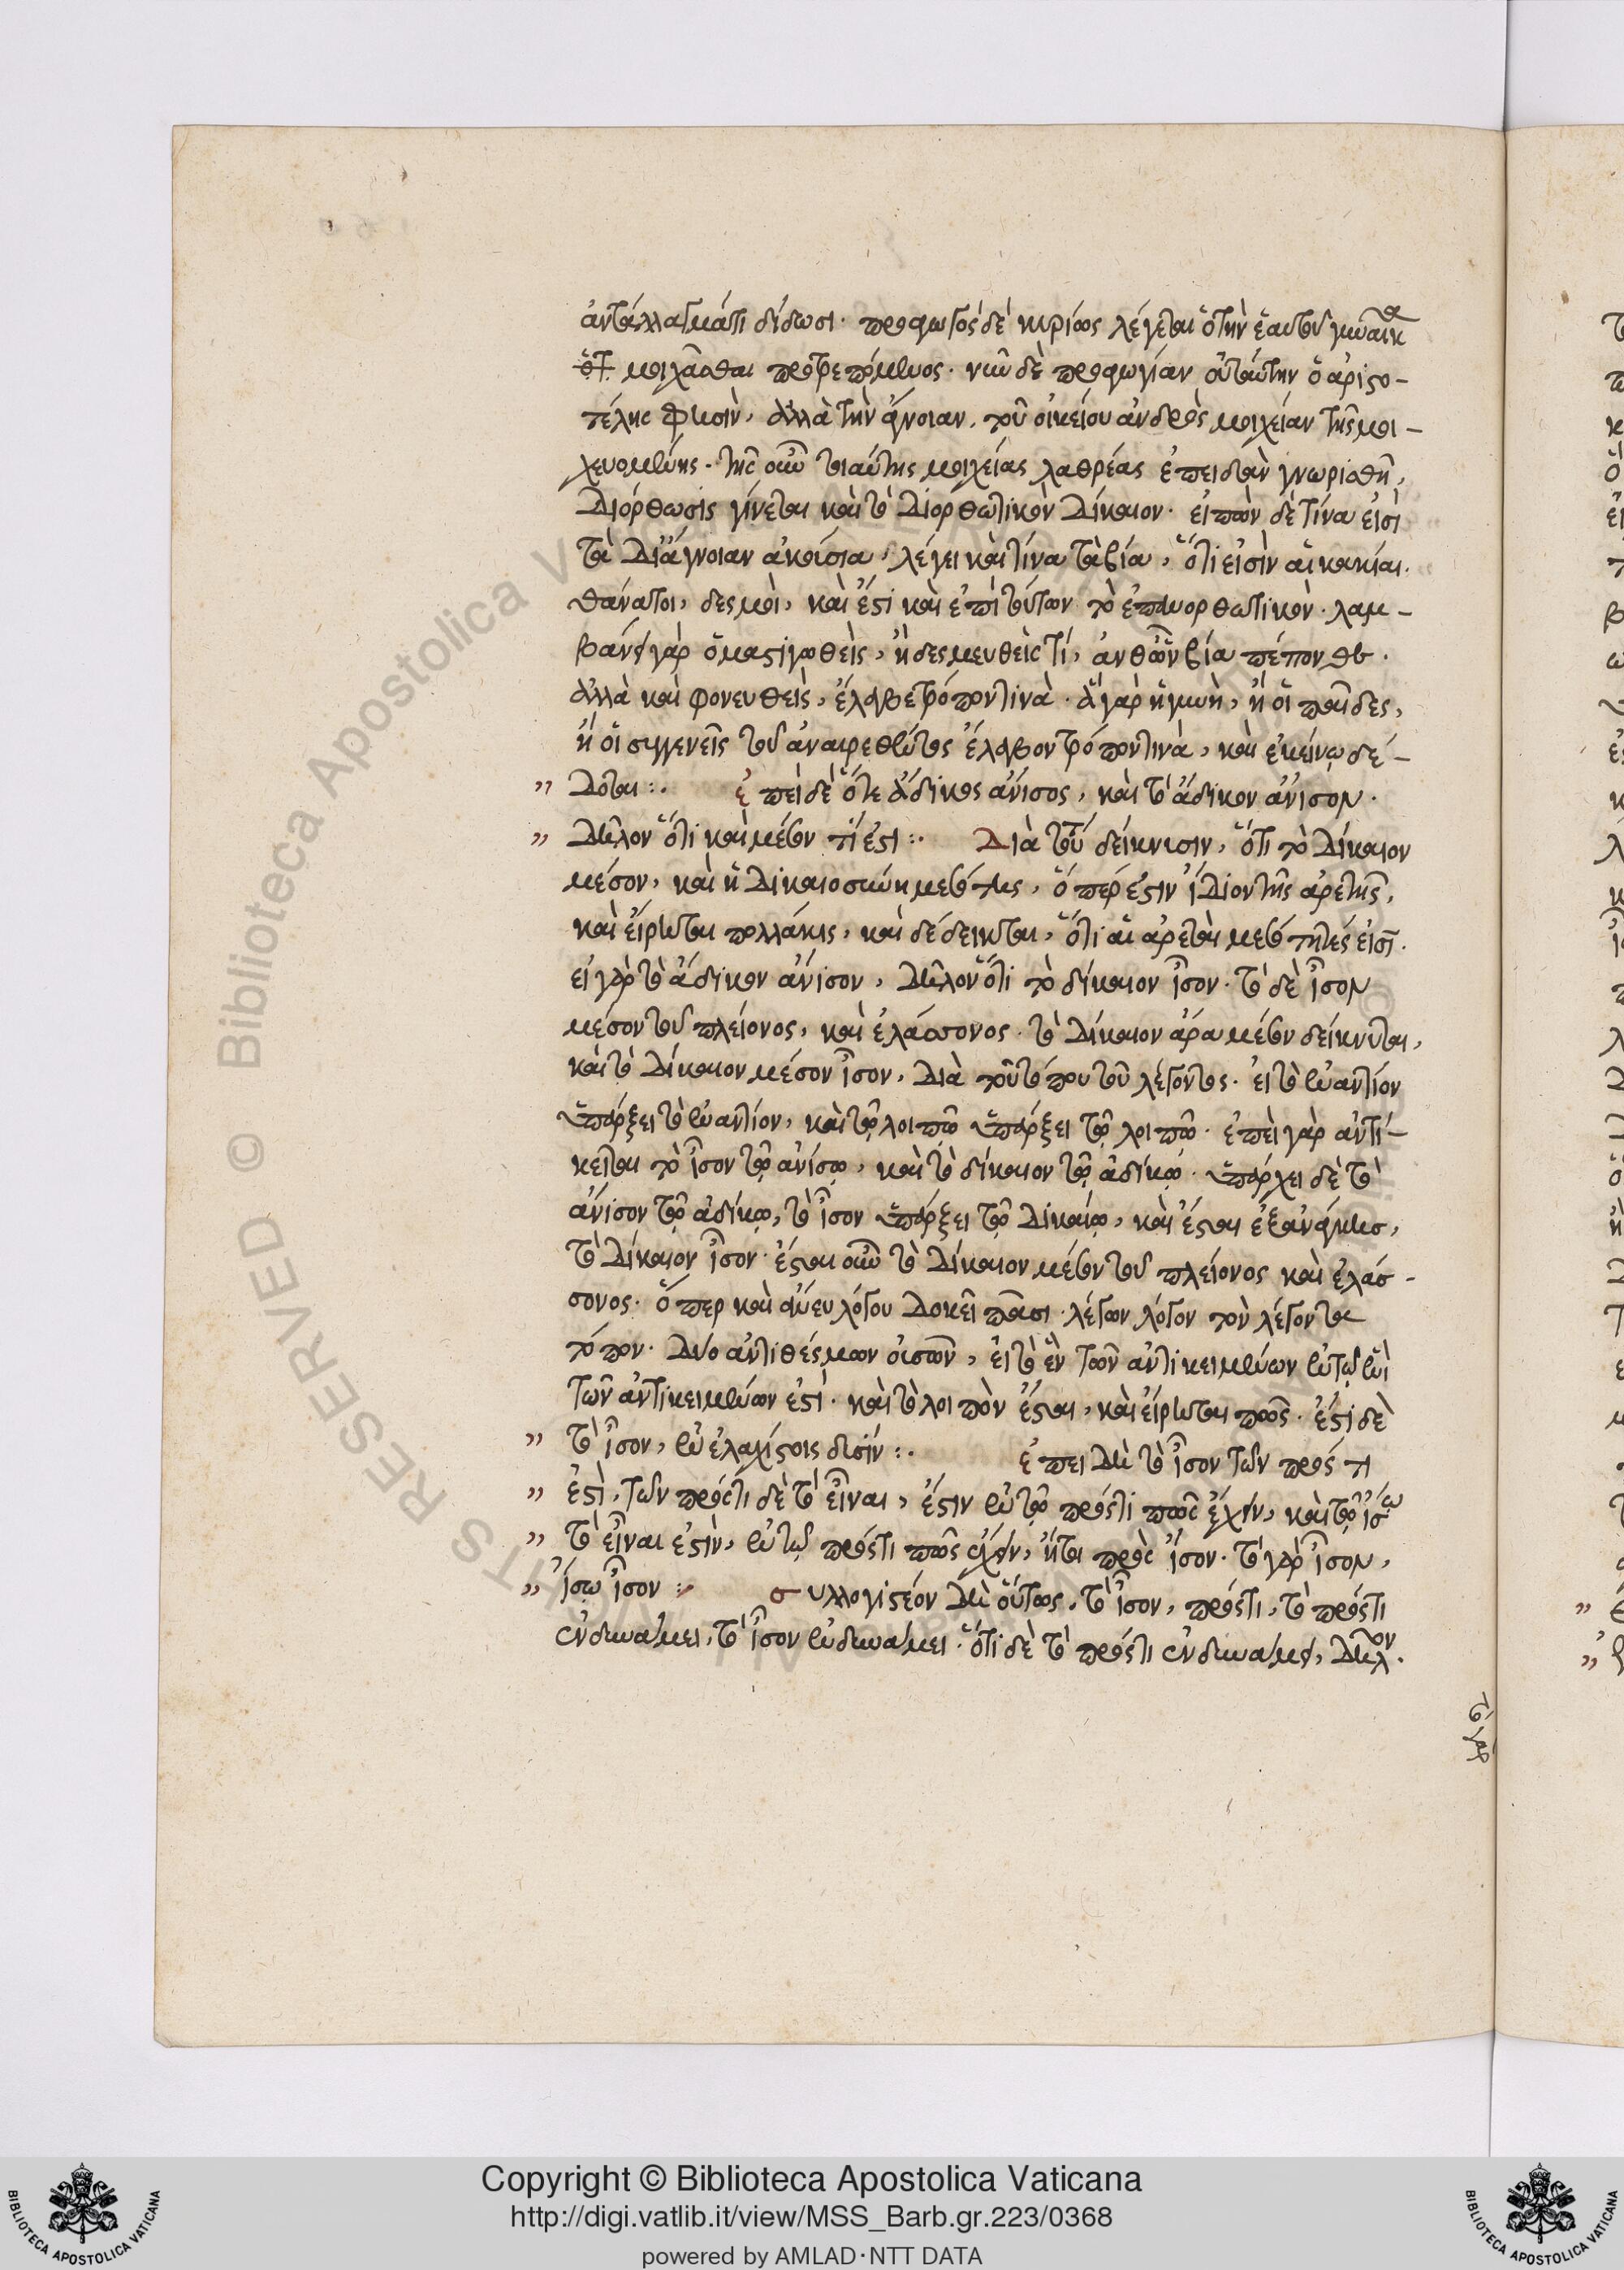 ἀνταλλάγματι δίδωσι. προαγωγὸς δὲ κυρίως λέγεται ὁ τὴν ἑαυτοῦ γυναῖκα
μοιχᾶσθαι προτρεπόμενος. νῦν δὲ προαγωγίαν οὐ ταύτην ὁ ἀριστο-
τέλης φησὶν, ἀλλὰ τὴν ἄγνοιαν. τοῦ οἰκείου ἀνδρὸς μοιχείαν τῆς μοι-
χευομένης. τῆς οὖν τοιαύτης μοιχείας λαθρέας ἐπειδὰν γνωρισθῆ,
Διόρθωσις γίνεται καὶ τὸ Διορθωτικὸν Δίκαιον. εἰπὼν δὲ τίνα εἰσὶ
τὰ Δι' ἄγνοιαν ἀκούσια, λέγει καὶ τίνα τὰ βία, ὅτι εἰσὶν αἱ κακίαι.
θάνατοι, δεσμοὶ, καὶ ἔστι καὶ ἐπὶ τούτων τὸ ἐπανορθωτικὸν. λαμ-
βάνει γὰρ ὁ μαστιγωθεὶς, ἢ δεσμευθεὶς τί, ἀνθ' ὧν βία πέπονθε.
ἀλλὰ καὶ φονευθεὶς, ἔλαβε τρόπον τινὰ. ἃ γὰρ ἡ γυνὴ, ἢ οἱ παῖδες,
ἢ οἱ συγγενεῖς τοῦ ἀναιρεθέντος ἔλαβον τρόπον τινὰ, καὶ ἐκείνῳ δέ-
" Δοται:. ἐπεὶ δὲ ὅτε ἄδικος ἄνισος, καὶ τὸ ἄδικον ἄνισον.
" Δῆλον ὅτι καὶ μέσον τί ἐστι:. Διὰ τοῦ δείκνυσιν, ὅτι τὸ Δίκαιον
μέσον, καὶ ἡ Δικαιοσύνη μεσότης, ὅπερ ἐστὶν ἴΔιον τῆς ἀρετῆς,
καὶ εἴρηται πολλάκις, καὶ δέδεικται, ὅτι αἱ ἀρεταὶ μεσότητές εἰσι.
εἰ γὰρ τὸ ἄδικον ἄνισον, Δῆλον ὅτι τὸ δίκαιον ἶσον. τὸ δὲ ἶσον
μέσον τοῦ πλείονος, καὶ ἐλάσσονος. τὸ Δίκαιον ἄρα μέσον δείκνυται,
καὶ τὸ Δίκαιον μέσον ἶσον, Διὰ τοῦ τόπου τοῦ λέγοντος. εἰ τὸ ἐναντίον
ὑπάρξει τὸ ἐναντίον, καὶ τῷ λοιπῷ ὑπάρξει τῷ λοιπῷ. ἐπεὶ γὰρ ἀντί-
κειται τὸ ἶσον τῷ ἀνίσῳ, καὶ τὸ δίκαιον τῷ ἀδίκῳ. ὑπάρχει δὲ τὸ
ἄνισον τῷ ἀδίκῳ, τὸ ἶσον ὑπάρξει τῷ Δικαίῳ, καὶ ἔσται ἐξ ἀνάγκης,
τὸ Δίκαιον ἶσον. ἔσται οὖν τὸ Δίκαιον μέσον τοῦ πλείονος καὶ ἐλάσ-
σονος. ὅπερ καὶ ἄνευ λόγου Δοκεῖ πᾶσι. λέγων λόγον τὸν λέγοντα
τόπον. Δύο ἀντιθέσεων οὐσῶν, εἰ τὸ ἓν τῶν ἀντικειμένων ἐν τῷ ἑνὶ
τῶν ἀντικειμένων ἐστὶ. καὶ τὸ λοιπὸν ἔσται, καὶ εἴρηται πῶς. ἔστι δὲ
" τὸ ἶσον, ἐν ἐλαχίστοις δυσίν:. ἐπεὶ Δὴ τὸ ἶσον τῶν πρός τι
" ἐστὶ, τῶν πρός τι δὲ τὸ εἶναι, ἔστιν ἐν τῷ πρός τι πῶς ἔχειν, καὶ τῷ ἴσῳ
" τὸ εἶναι ἐστὶν, ἐν τῷ πρός τι πῶς ἔχειν, ἤτοι πρὸς ἴσον. τὸ γὰρ ἶσον,
" ἴσῳ ἶσον:. συλλογιστέον Δὴ οὕτως. τὸ ἶσον, πρός τι, τὸ πρός τι
ἐν δυνάμει, τὸ ἶσον ἐν δυνάμει. ὅτι δὲ τὸ πρός τι ἐν δυνάμει, Δῆλον.
τὸ γὰρ
Copyright © Biblioteca Apostolica Vaticana
http://digi.vatlib.it/view/MSS_Barb.gr.223/0368
powered by AMLAD·NTT DATA